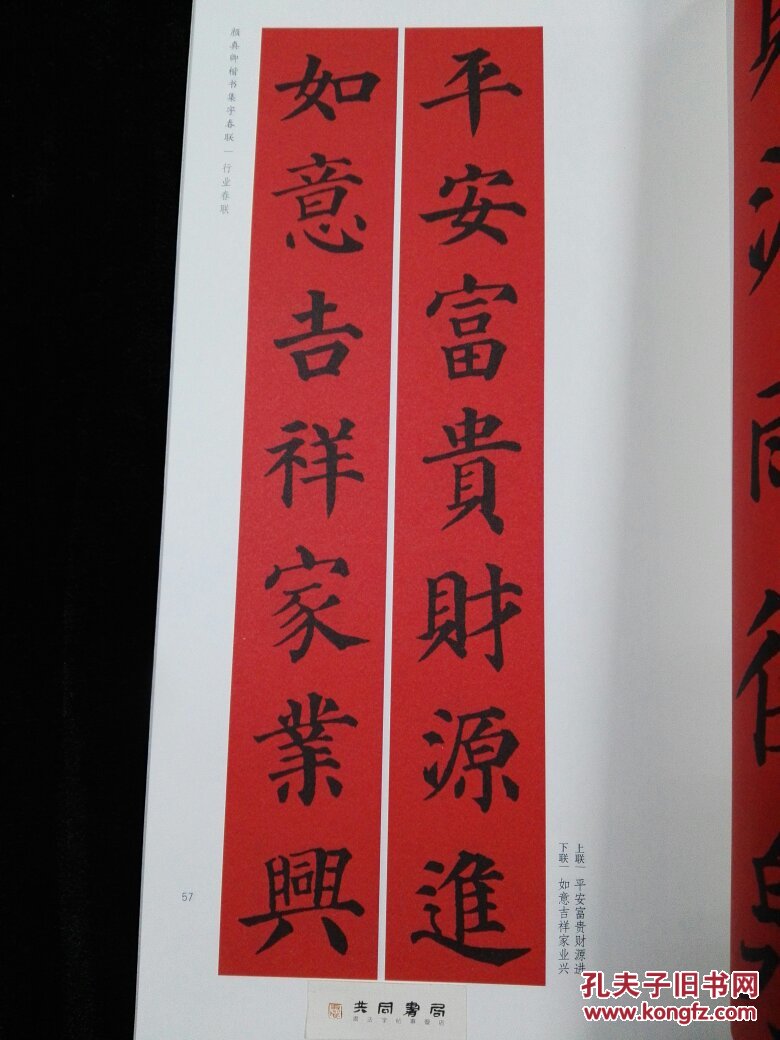 平安富貴財源進
如意吉祥家業興
颜真卿楷书集字春联｜行业春联
上联｜平安富贵财源进
下联｜如意吉祥家业兴
57
共同書局
孔夫子旧书网
www.kongfz.com